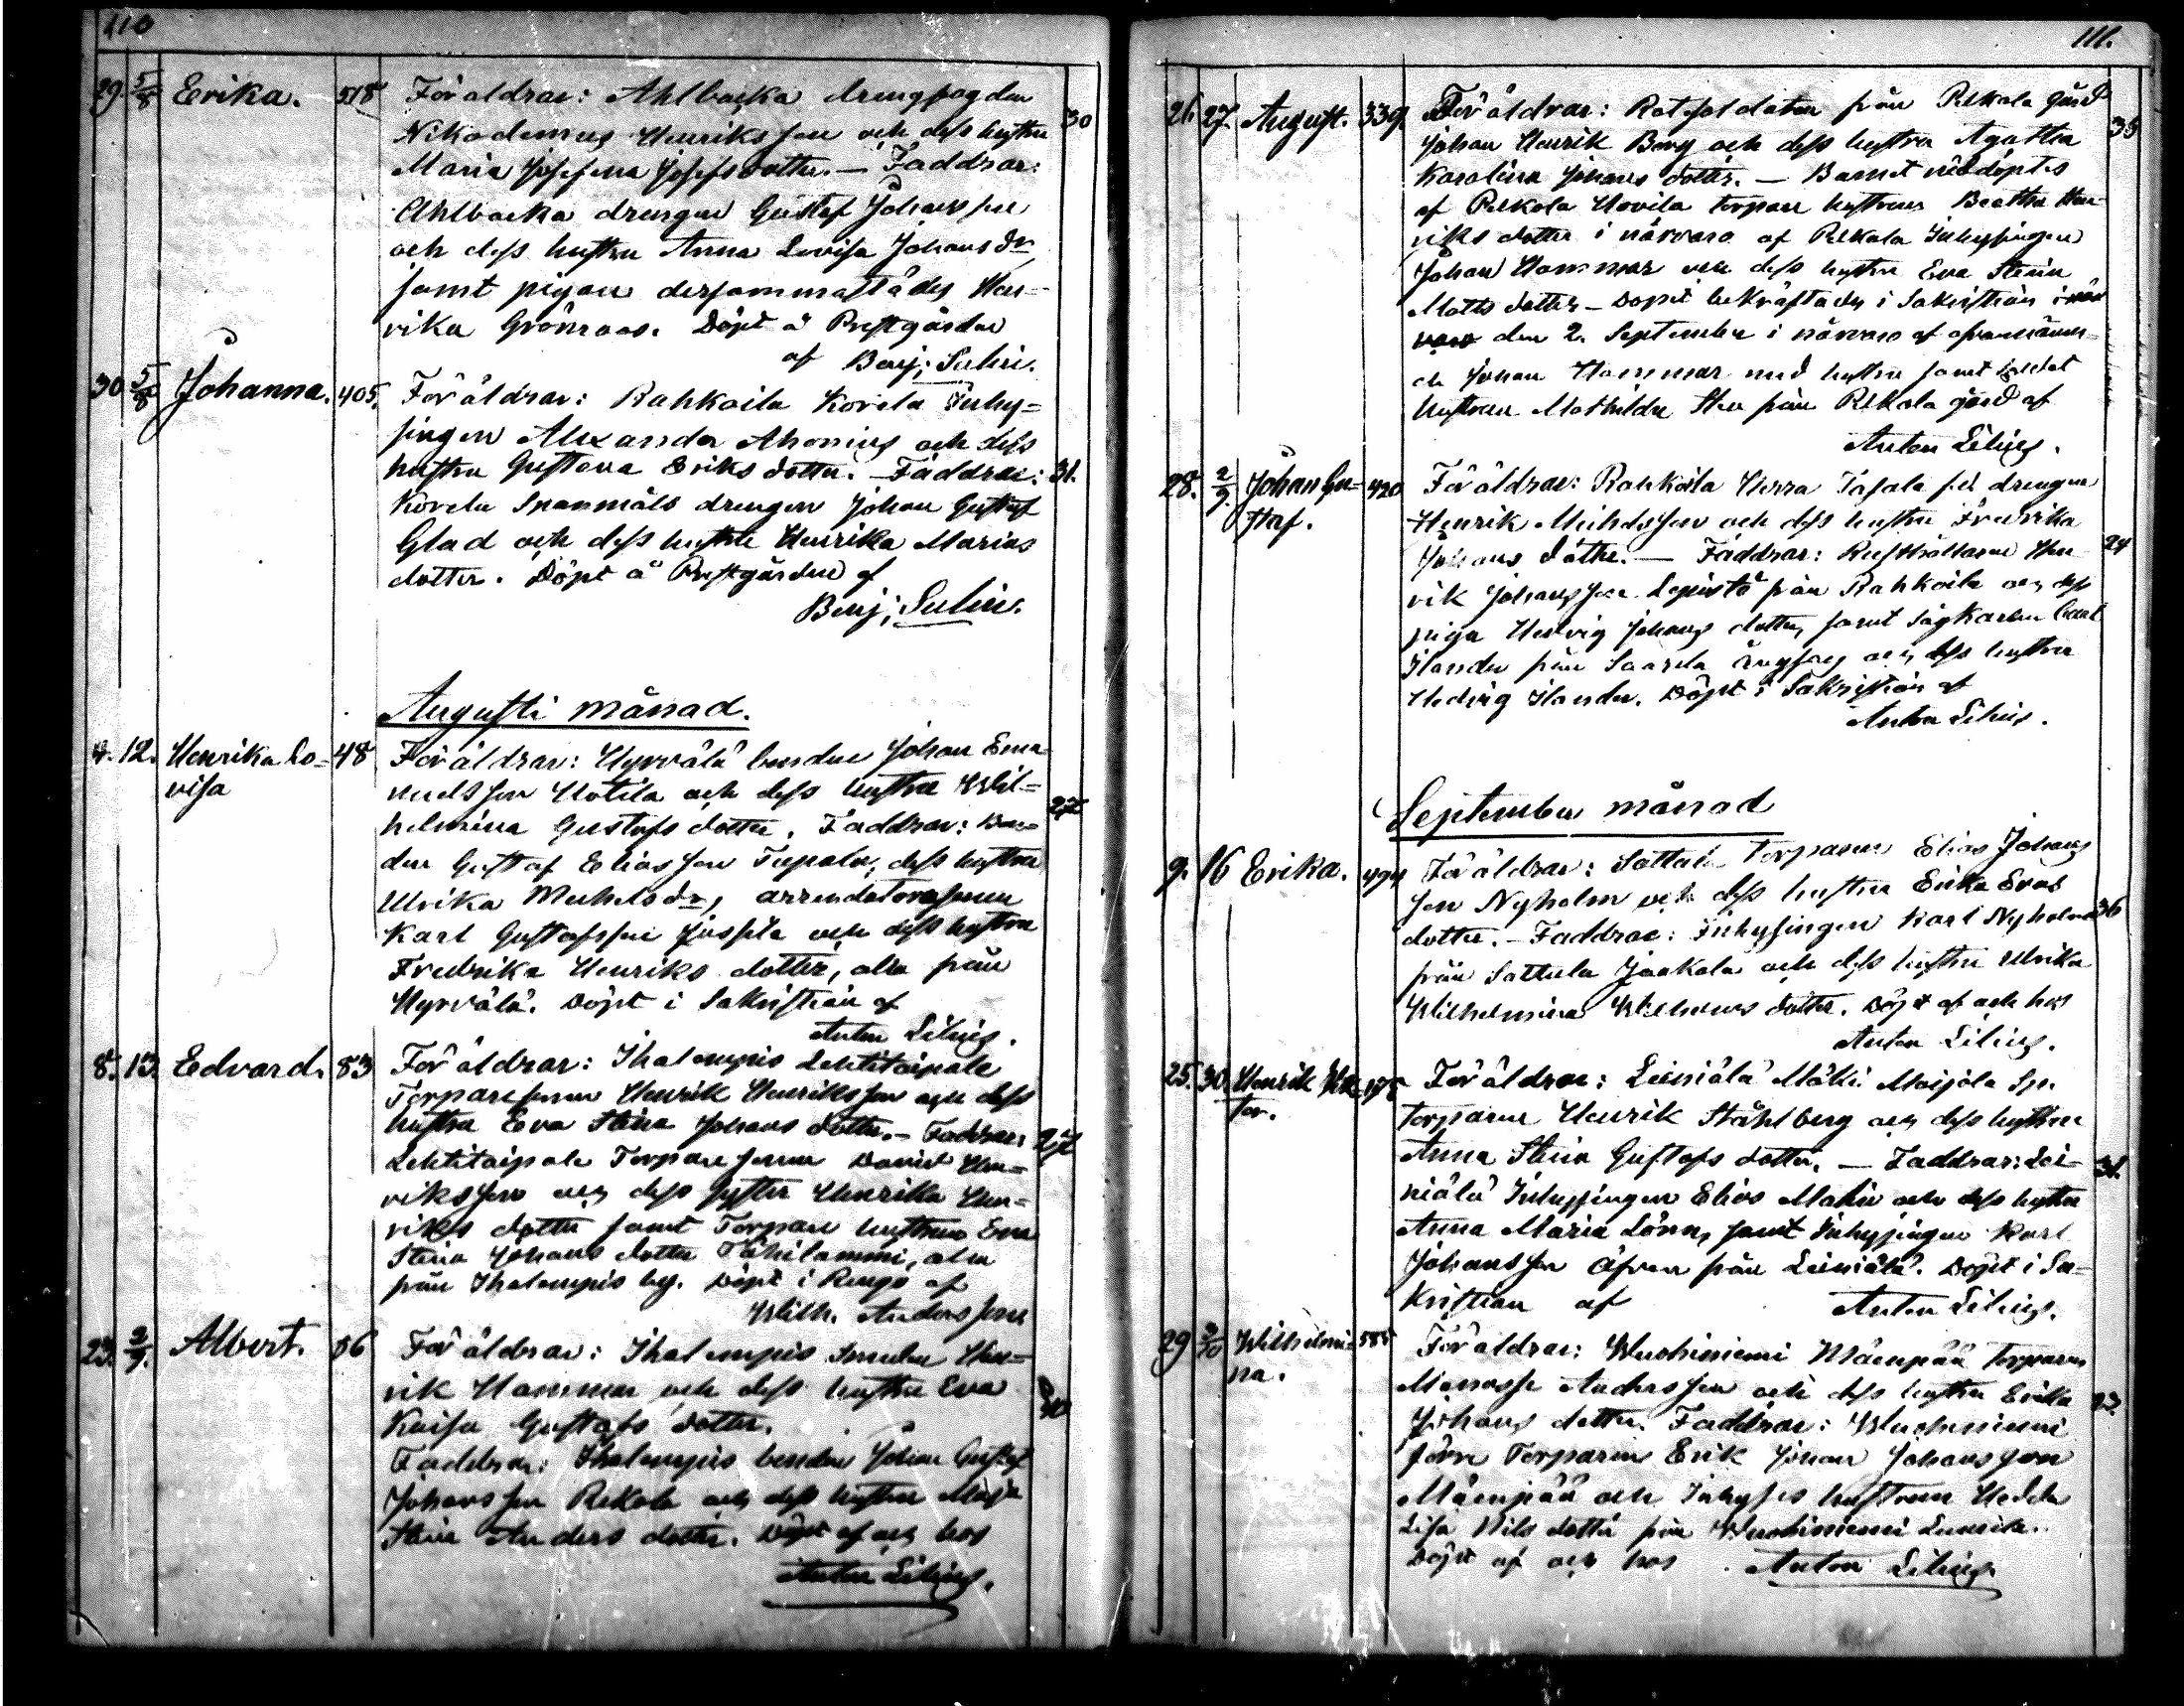 110
29. 5/8 Erika. 518 Föräldrar: Ahlbacka drengpogden
Nikodemus Henriksson och dess hustru 30
Maria Josefina Josefsdotter. — Faddrar:
Ahlbacka drengen Gustaf Johansson
och dess hustru Anna Lovisa Johans dr
samt pigan dersammastädes Hen=
rika Grönroos. Döpt å Prestgården
af Benj; Salin.
30 5/8 Johanna. 405. Föräldrar: Rahkoila Korela Inhy=
singen Alexander Ahonius och dess
hustru Gustava Eriks dotter. — Faddrar: 31.
Korela Spanmåls drengen Johan Gustaf
Glad och dess hustru Henrika Marias
dotter. Döpt å Prestgården af
Benj; Salin.
Augusti månad.
4. 12. Henrika Lo= 48 Föräldrar: Hyrvälä bonden Johan Ema
visa nuelsson Uotila och dess hustru Wil=
helmina Gustafs dotter. Faddrar: Bon=
den Gustaf Eliasson Tupala, dess hustru
Ulrika Michelsdr, arrendatorssonen
Karl Gustafsson Jussila och dess hustru
Fredrika Henriks dotter, alla från
Hyrvälä. Döpt i Sakristian af
Anton Lilius.
8. 13. Edvard. 83 Föräldrar: Ihalempis Lehtitaipale
Torparesonen Henrik Henriksson och dess
hustru Eva Stina Johans dotter. — Faddrar:
Lehtitaipale Torparesonen David Hen=
riksson och dess syster Henrika Hen=
riks dotter samt Torpare hustrun Eva
Stina Johans dotter Tähilammi, alla
från Ihalempis by. Döpt i Rengo af
Wilh. Andersson
23. 2/9. Albert. 86 Föräldrar: Ihalempis Smeden Hen=
rik Hammar och dess hustru Eva
Kaisa Gustafs dotter.
Faddrar: Ihalempis bonden Johan Gustaf
Johansson Rekola och dess hustru Maja
Stina Anders dotter. Döpt af och hos
Anton Lilius.
111.
26. 27. August. 339. Föräldrar: Rotesoldaten från Pelkola gård
Johan Henrik Berg och dess hustru Agatha 35
Karolina Johans dotter. — Barnet nöddöptes
af Pelkola Hovila torpare hustrun Beatha Hen=
riks dotter i närvaro af Pelkola Inhysingen
Johan Hammar och dess hustru Eva Stina
Matts dotter — Dopet bekräftades i Sakristian i när
varo den 2. September i närvaro af
Johan Hammar med hustru samt Soldat
hustrun Mathilda från Pelkola gård af
Anton Lilius.
28. 2/9. Johan Gu= 420 Föräldrar: Rahkoila Uierra Tafala drengen
staf. Henrik Michelsson och dess hustru Fredrika
Johans dotter. — Faddrar: Rusthållaren Hen= 24
rik Johansson Lepistö från Rahkoila och dess
piga Hedvig Johans dotter, samt Sågkarlen Carl
Ilander från Saarela ångsåg och dess hustru
Hedvig Ilander. Döpt i Sakristian af
Anton Lilius.
September månad
9. 16 Erika. 494 Föräldrar: Sattula Torparen Elias Johans
son Nyholm och dess hustru Erika Evas
dotter. — Faddrar: Inhysingen Karl Nyholm 36
från Sattula Jaakola och dess hustru Ulrika
Wilhelmina Wilhelms dotter. Döpt af och hos
Anton Lilius.
25. 30. Henrik Vik= Föräldrar: Leiniälä Mäki Maijola Sp.
tor. torparen Henrik Ståhlberg och dess hustru
Anna Stina Gustafs dotter. — Faddrar: Lei= 31.
niälä Inhysingen Elias Malin och dess hustru
Anna Maria Lönn, samt Inhysingen Karl
Johansson äfven från Leiniälä. Döpt i Sa=
kristian af Anton Lilius.
29 Wilhelmi= 585 Föräldrar: Wuohiniemi Mäenpää torparen
na. Manasse Andersson och dess hustru Erika
Johans dotter. Faddrar: Wuohiniemi
förre Torparen Erik Johan Johansson
Mäenpää och Inhyses hustrun Hedda
Lisa Nils dotter från Wuohiniemi
Döpt af och hos Anton Lilius.